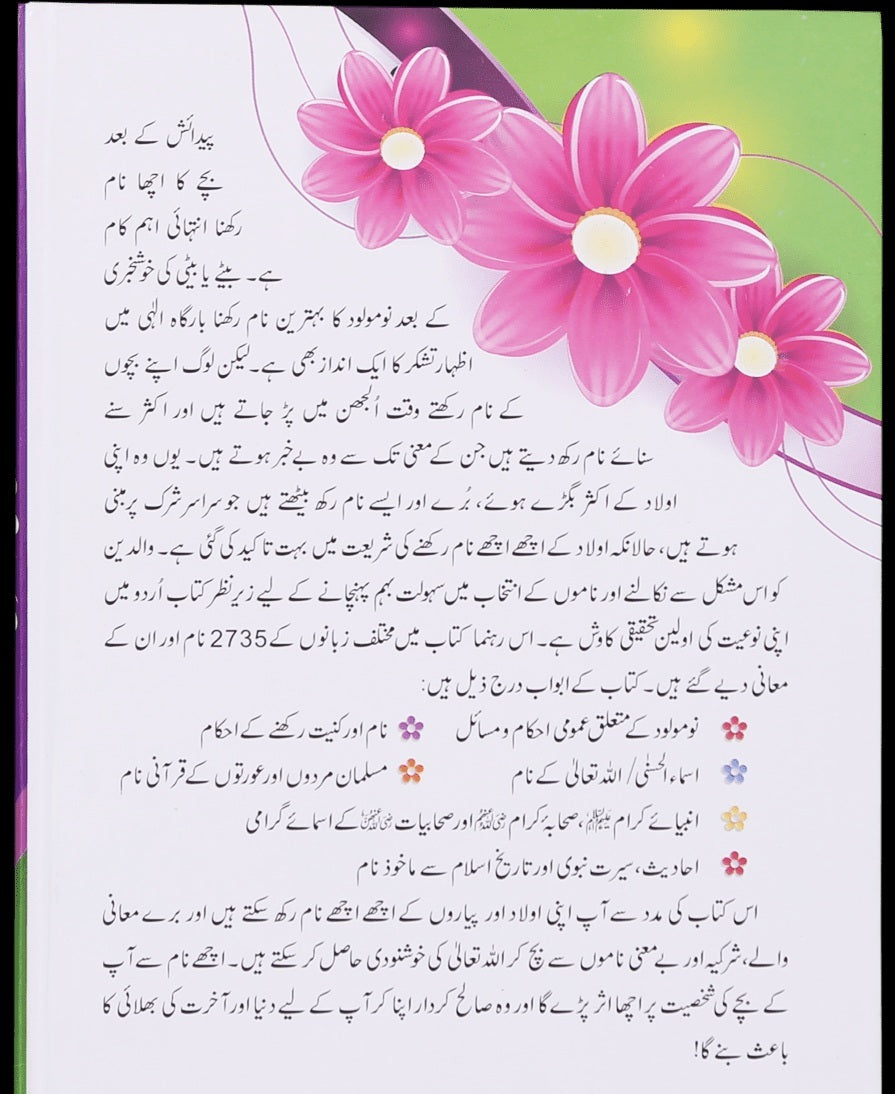 پیدائش کے بعد
بچے کا اچھا نام
رکھنا انتہائی اہم کام
ہے۔ بیٹے یا بیٹی کی خوشخبری
کے بعد نومولود کا بہترین نام رکھنا بارگاہ الٰہی میں
اظہار تشکر کا ایک انداز بھی ہے۔ لیکن لوگ اپنے بچوں
کے نام رکھتے وقت اُلجھن میں پڑ جاتے ہیں اور اکثر سنے
سنائے نام رکھ دیتے ہیں جن کے معنی تک سے وہ بے خبر ہوتے ہیں۔ یوں وہ اپنی
اولاد کے اکثر بگڑے ہوئے، بُرے اور ایسے نام رکھ بیٹھتے ہیں جو سراسر شرک پر مبنی
ہوتے ہیں، حالانکہ اولاد کے اچھے اچھے نام رکھنے کی شریعت میں بہت تاکید کی گئی ہے۔ والدین
کو اس مشکل سے نکالنے اور ناموں کے انتخاب میں سہولت بہم پہنچانے کے لیے زیر نظر کتاب اُردو میں
اپنی نوعیت کی اولین تحقیقی کاوش ہے۔ اس رہنما کتاب میں مختلف زبانوں کے 2735 نام اور ان کے
معانی دیے گئے ہیں۔ کتاب کے ابواب درج ذیل ہیں:
نومولود کے متعلق عمومی احکام و مسائل نام اور کنیت رکھنے کے احکام
اسماء الحسنٰی/ اللہ تعالیٰ کے نام مسلمان مردوں اور عورتوں کے قرآنی نام
انبیائے کرام علیہم السلام، صحابۂ کرام رضی اللہ عنہم اور صحابیات رضی اللہ عنہن کے اسمائے گرامی
احادیث، سیرت نبوی اور تاریخ اسلام سے ماخوذ نام
اس کتاب کی مدد سے آپ اپنی اولاد اور پیاروں کے اچھے اچھے نام رکھ سکتے ہیں اور برے معانی
والے، شرکیہ اور بے معنی ناموں سے بچ کر اللہ تعالیٰ کی خوشنودی حاصل کر سکتے ہیں۔ اچھے نام سے آپ
کے بچے کی شخصیت پر اچھا اثر پڑے گا اور وہ صالح کردار اپنا کر آپ کے لیے دنیا اور آخرت کی بھلائی کا
باعث بنے گا!